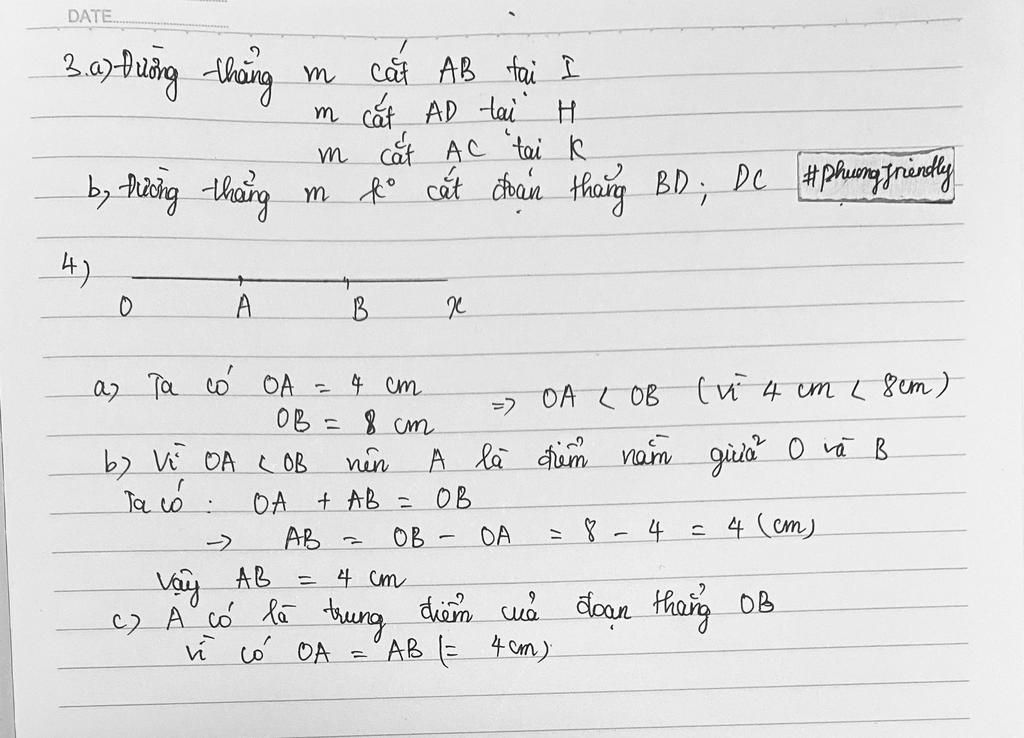 DATE
3.a) Đường thẳng m cắt AB tại I
m cắt AD tại H
m cắt AC tại K
b, Đường thẳng m k° cắt đoạn thẳng BD; DC #phuongfriendly
4)
O A B x
a) Ta có OA = 4 cm
OB = 8 cm => OA < OB (vì 4 cm < 8cm)
b) Vì OA < OB nên A là điểm nằm giữa O và B
Ta có: OA + AB = OB
-> AB = OB - OA = 8 - 4 = 4 (cm)
Vậy AB = 4 cm
c) A có là trung điểm của đoạn thẳng OB
vì có OA = AB (= 4cm)